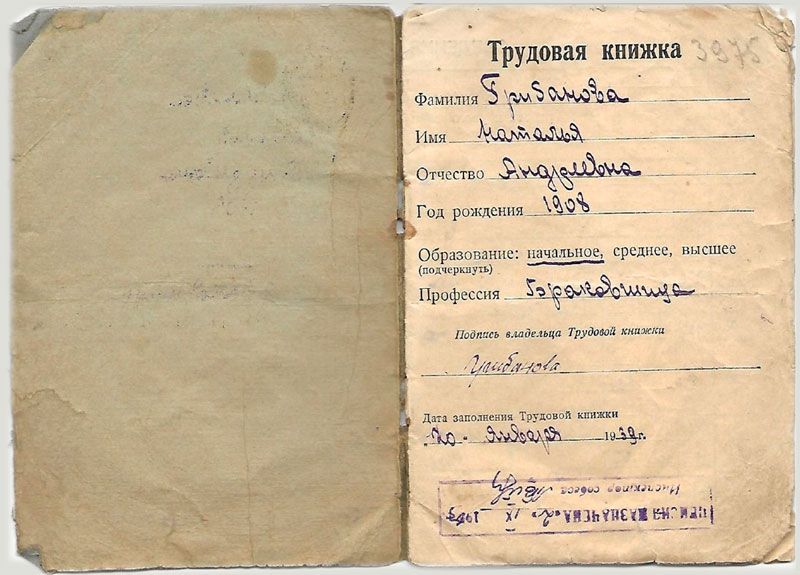 Трудовая книжка 3975
Фамилия Грибанова
Имя Наталья
Отчество Андреевна
Год рождения 1908
Образование: начальное, среднее, высшее
(подчеркнуть)
Профессия Браковщица
Подпись владельца Трудовой книжки
Грибанова
Дата заполнения Трудовой книжки
"20" января 1939 г.
ПЕНСИЯ НАЗНАЧЕНА
IX 19
Инспектор собеса